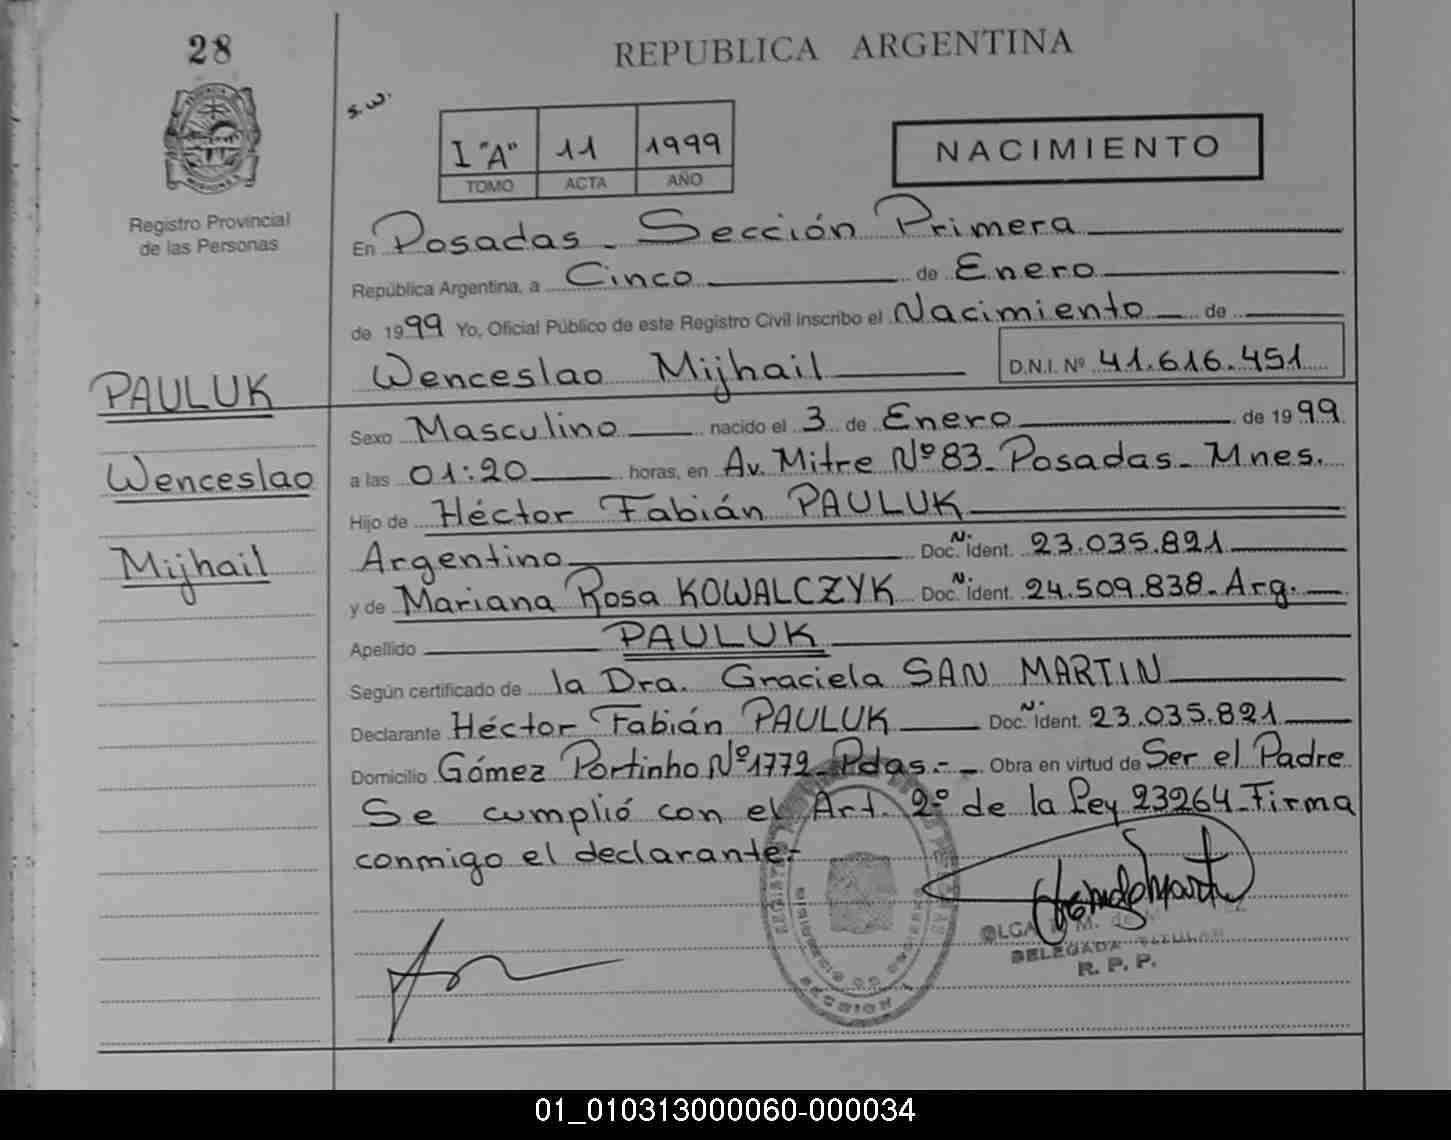 28
REPUBLICA ARGENTINA
s.w.
I "A" 11 1999
TOMO ACTA AÑO
NACIMIENTO
Registro Provincial
de las Personas
En Posadas - Sección Primera
República Argentina, a Cinco de Enero
de 1999 Yo, Oficial Público de este Registro Civil inscribo el Nacimiento de
Wenceslao Mijhail D.N.I. Nº 41.616.451
PAULUK
Wenceslao
Mijhail
Sexo Masculino nacido el 3 de Enero de 1999
a las 01:20 horas, en Av. Mitre Nº 83 - Posadas - Mnes.
Hijo de Héctor Fabián PAULUK
Argentino Doc. N. Ident. 23.035.821
y de Mariana Rosa KOWALCZYK Doc. N. Ident. 24.509.838 - Arg.
Apellido PAULUK
Según certificado de la Dra. Graciela SAN MARTIN
Declarante Héctor Fabián PAULUK Doc. N. Ident. 23.035.821
Domicilio Gómez Portinho Nº 1772 - Pdas.- Obra en virtud de Ser el Padre
Se cumplió con el Art. 2º de la Ley 23264 - Firma
conmigo el declarante.-
OLGA M. de
DELEGADA TITULAR
R. P. P.
SECCION 1
01_010313000060-000034